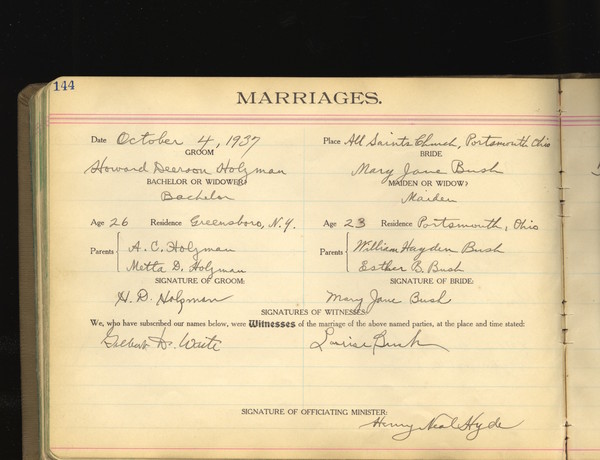 144
MARRIAGES.
Date October 4, 1937 Place All Saints Church, Portsmouth Ohio
GROOM BRIDE
Howard Deerson Holzman Mary Jane Bush
BACHELOR OR WIDOWER? MAIDEN OR WIDOW?
Bachelor Maiden
Age 26 Residence Greensboro, N.Y. Age 23 Residence Portsmouth, Ohio
Parents A. C. Holzman Parents William Hayden Bush
Metta D. Holzman Esther B. Bush
SIGNATURE OF GROOM: SIGNATURE OF BRIDE:
H. D. Holzman Mary Jane Bush
SIGNATURES OF WITNESSES:
We, who have subscribed our names below, were Witnesses of the marriage of the above named parties, at the place and time stated:
Waite Louise Bush
SIGNATURE OF OFFICIATING MINISTER:
Henry Neal Hyde